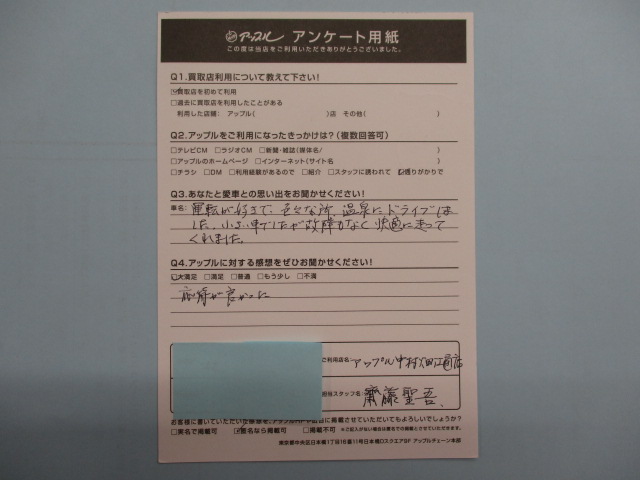 アップル アンケート用紙
この度は当店をご利用いただきありがとうございました。
Q1.買取店利用について教えて下さい!
☑買取店を初めて利用
□過去に買取店を利用したことがある
利用した店舗: アップル( )店 その他( )
Q2.アップルをご利用になったきっかけは?(複数回答可)
□テレビCM □ラジオCM □新聞・雑誌(媒体名/ )
□アップルのホームページ □インターネット(サイト名 )
□チラシ □DM □利用経験があるので □紹介 □スタッフに誘われて ☑通りがかりで
Q3.あなたと愛車との思い出をお聞かせください!
車名: 運転が好きで、色々な所、温泉にドライブしま
した。小さい車でしたが故障もなく快適に走って
くれました。
Q4.アップルに対する感想をぜひお聞かせください!
☑大満足 □満足 □普通 □もう少し □不満
応対が良かった
ご利用店名: アップル中村
担当スタッフ名: 齋藤聖吾
□実名で掲載可 ☑匿名なら掲載可 □掲載不可 ※ご記入がない場合は匿名での掲載とさせていただきます。
東京都中央区日本橋1丁目16番11号日本橋Dスクエア6F アップルチェーン本部